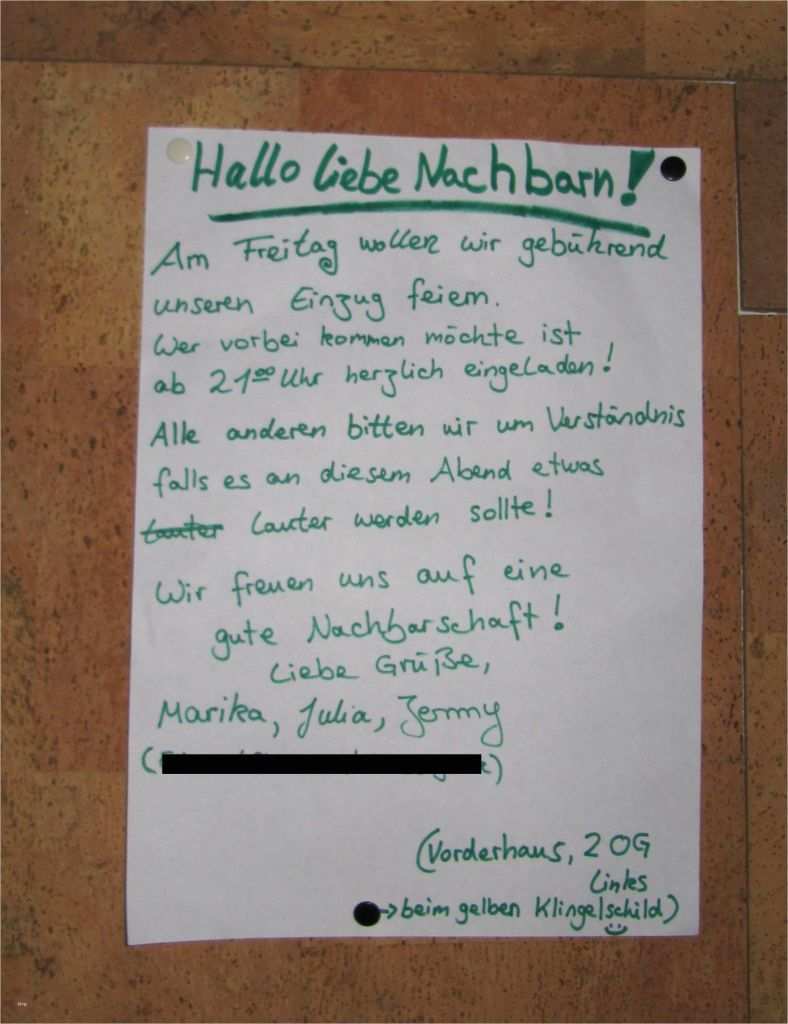 Hallo liebe Nachbarn!
Am Freitag wollen wir gebührend
unseren Einzug feiern.
Wer vorbei kommen möchte ist
ab 21⁰⁰ Uhr herzlich eingeladen!
Alle anderen bitten wir um Verständnis
falls es an diesem Abend etwas
lauter lauter werden sollte!
Wir freuen uns auf eine
gute Nachbarschaft!
Liebe Grüße,
Marika, Julia, Jenny
(Vorderhaus, 2 OG
Links
→ beim gelben Klingelschild)